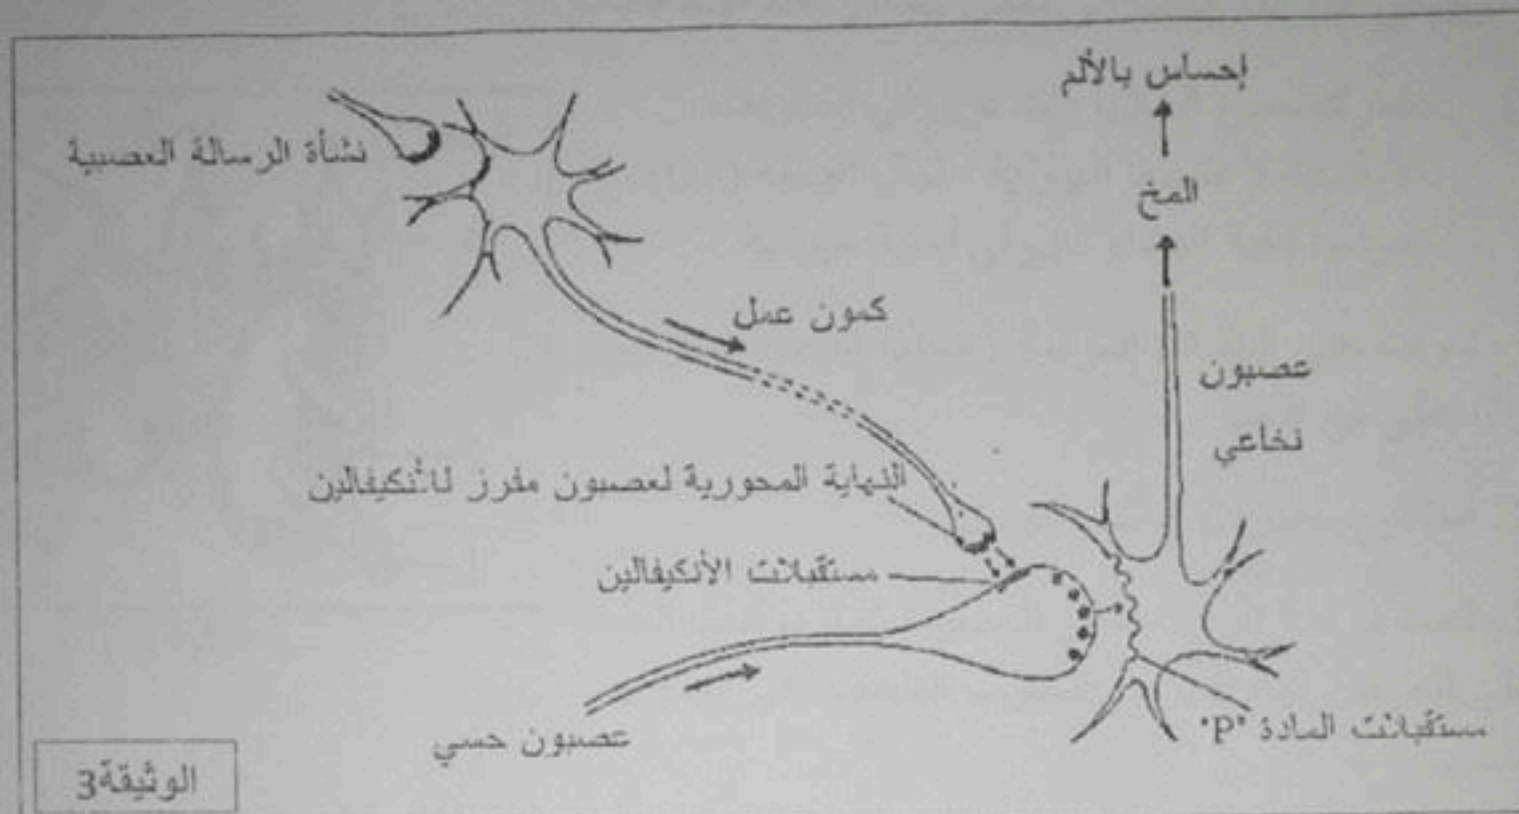 إحساس بالألم
المخ
نشأة الرسالة العصبية
كمون عمل
عصبون
نخاعي
النهاية المحورية لعصبون مفرز للأنكيفالين
مستقبلات الأنكيفالين
عصبون حسي
مستقبلات المادة "P"
الوثيقة3